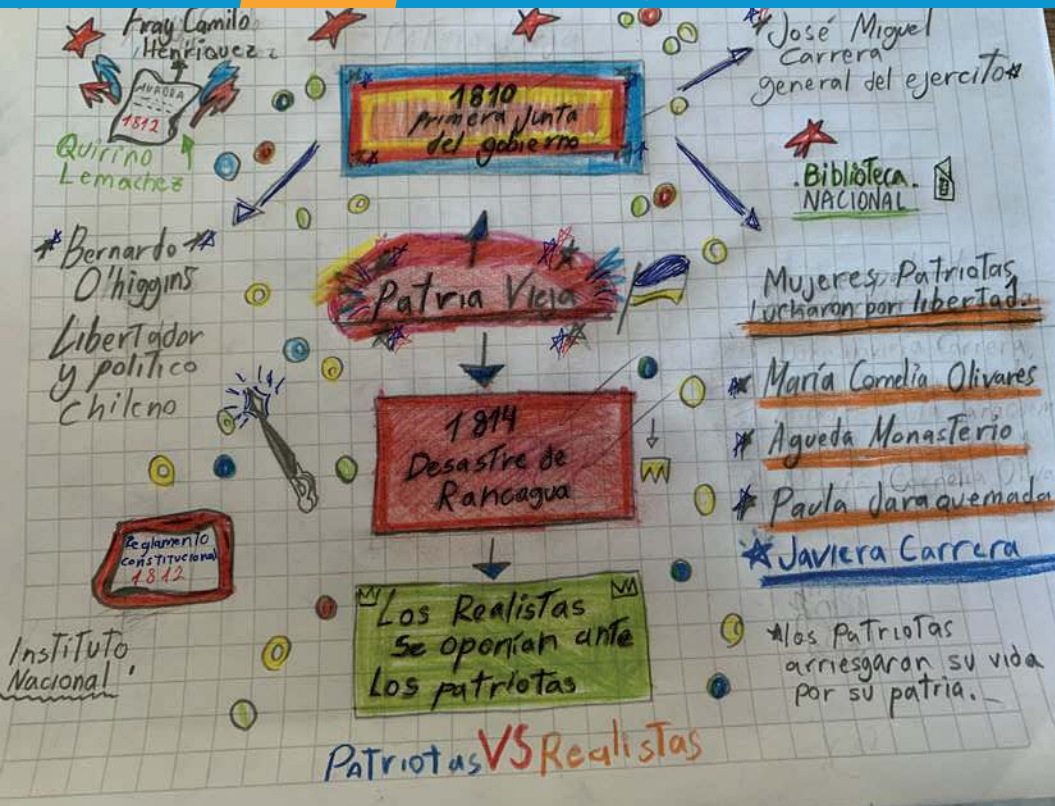 Fray Camilo
Henríquez
AURORA
1812
Quirino
Lemachez
1810
Primera Junta
del gobierno
José Miguel
Carrera
general del ejercito
Biblioteca
NACIONAL
Bernardo
O'higgins
Libertador
y político
chileno
Patria Vieja
Mujeres Patriotas
Lucharon por libertad.
María Cornelia Olivares
Agueda Monasterio
Paula Jaraquemada
Javiera Carrera
1814
Desastre de
Rancagua
Reglamento
constitucional
1812
Instituto
Nacional
Los Realistas
se oponían ante
Los patriotas
los patriotas
arriesgaron su vida
por su patria.
Patriotas VS Realistas